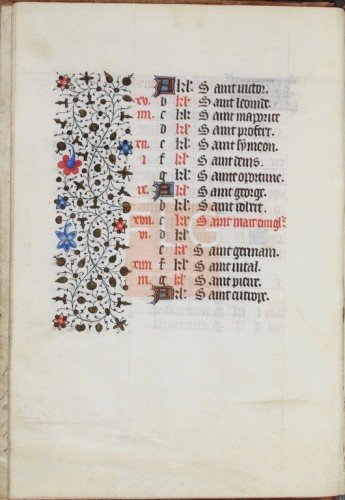 A kl' Saint victor.
xv. b kl' Saint leonide.
iiii. c kl' Saint maporice
d kl' Saint
xii. e kl' Saint symeon.
i f kl' Saint denis.
g kl' Sainte oportune.
ix. A kl' Saint george.
b kl' Saint
xvii. c kl' Saint marc
vi. d kl'
e kl' Saint germain.
xiiii f kl' Saint vital.
iii. g kl' Saint pierre.
A kl' Saint eutrope.